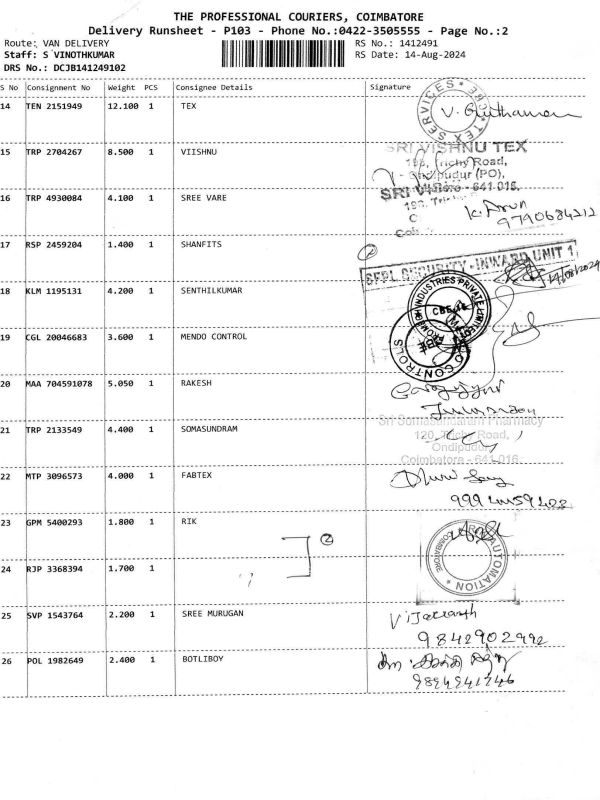 THE PROFESSIONAL COURIERS, COIMBATORE
Delivery Runsheet - P103 - Phone No.:0422-3505555 - Page No.:2
Route: VAN DELIVERY
RS No.: 1412491
Staff: S VINOTHKUMAR
RS Date: 14-Aug-2024
DRS No.: DCJB141249102
S No Consignment No Weight PCS Consignee Details Signature
14 TEN 2151949 12.100 1 TEX
TEX SERVICES
15 TRP 2704267 8.500 1 VIISHNU
SRI VISHNU TEX
Trichy Road,
Ondipudur (PO),
16 TRP 4930084 4.100 1 SREE VARE
641 016.
K. Arun
9790684212
17 RSP 2459204 1.400 1 SHANFITS
2
SFPL SECURITY - INWARD UNIT 1
14/08/2024
18 KLM 1195131 4.200 1 SENTHILKUMAR
INDUSTRIES PRIVATE LIMITED
19 CGL 20046683 3.600 1 MENDO CONTROL
CONTROLS
20 MAA 704591078 5.050 1 RAKESH
21 TRP 2133549 4.400 1 SOMASUNDRAM
Sri Somasundaram Pharmacy
120, Trichy Road,
Ondipudur
Coimbatore - 641 016
22 MTP 3096573 4.000 1 FABTEX
23 GPM 5400293 1.800 1 RIK
2
AUTOMATION
COIMBATORE
24 RJP 3368394 1.700 1
25 SVP 1543764 2.200 1 SREE MURUGAN
9842902992
26 POL 1982649 2.400 1 BOTLIBOY
9894941746